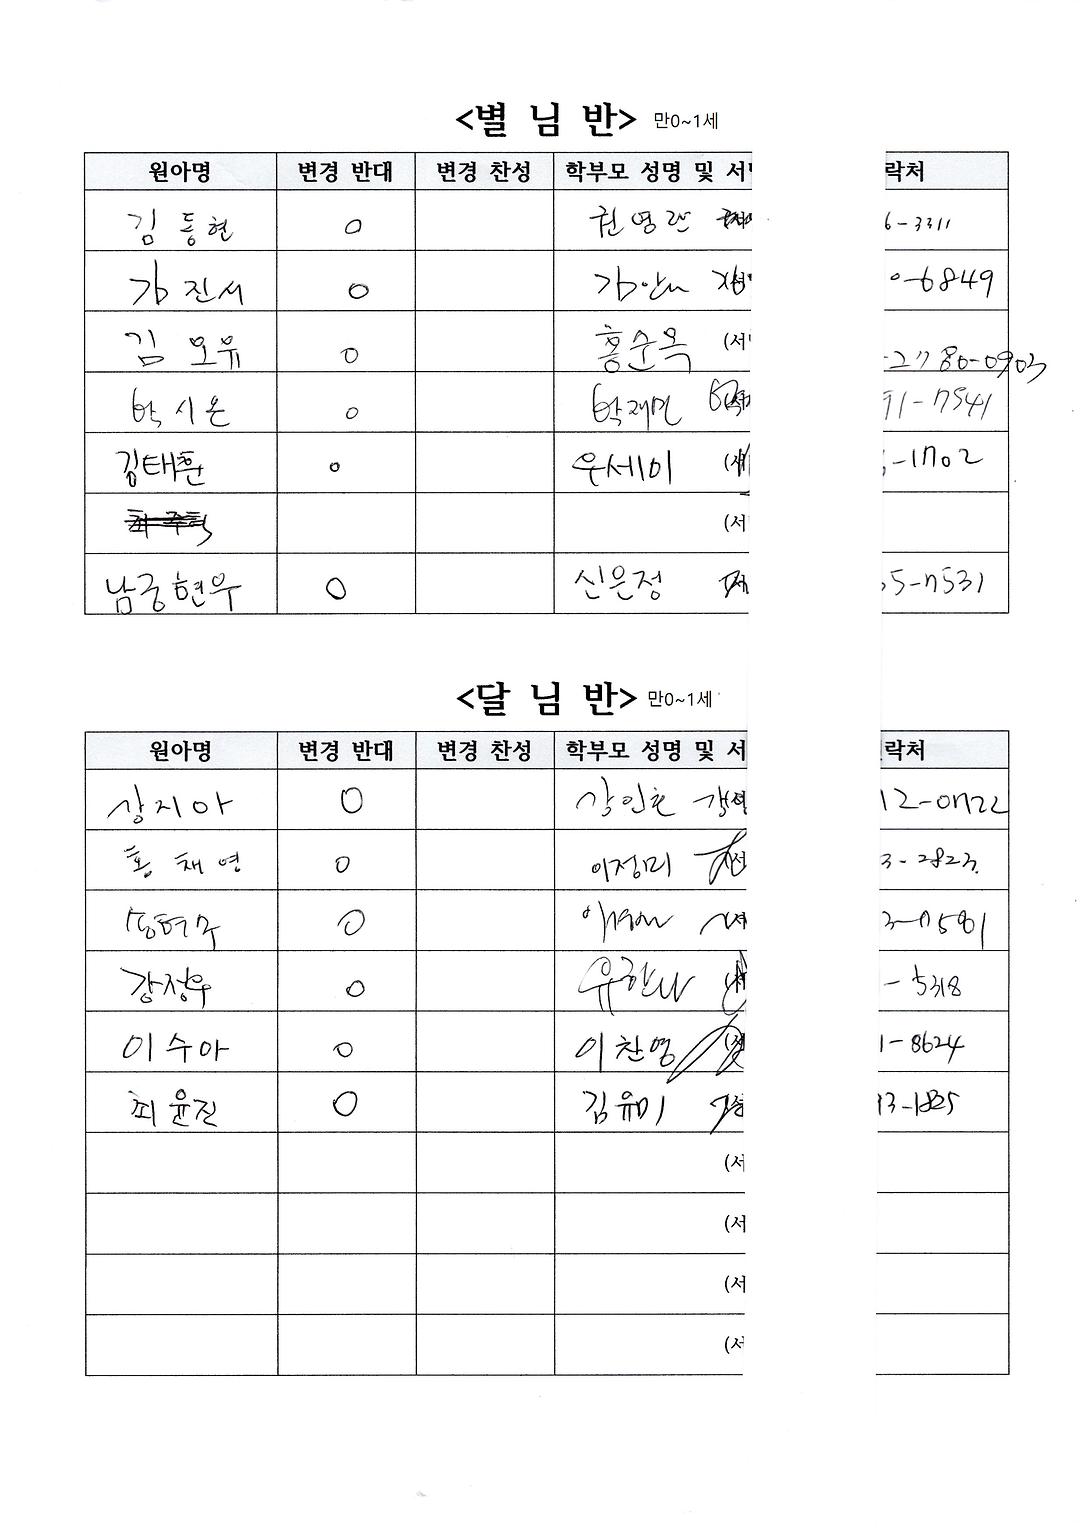 <별 님 반> 만0~1세
원아명 변경 반대 변경 찬성 학부모 성명 및 서 락처
김 동현 ○ 권영란 6-3311
김진서 ○ 0-6849
김 모유 ○ 홍순옥 (서 -2780-0903
박시온 ○ 박재민 91-7541
김태훈 ○ 우세미 -1702
(서
남궁현우 ○ 신은정 55-7531
<달 님 반> 만0~1세
원아명 변경 반대 변경 찬성 학부모 성명 및 서 락처
강지아 ○ 12-0722
홍채영 ○ 이정미 3-2823
○ 3-7581
강정우 ○ 유한나 -5318
이수아 ○ 이찬영 1-8624
최윤진 ○ 김유미 93-1825
(서
(서
(서
(서